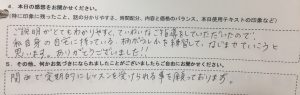 4. 本日の感想をお聞かせください。
(特に印象に残ったこと、話の分かりやすさ、時間配分、内容と価格のバランス、本日使用テキストの印象など)
ご説明がとてもわかりやすく、ていねいなご指導をしていただいたので、
私自身の自宅に持っている、柄がらを練習して、なじませていこうと
思います。ありがとうございました!!
5. その他、何かお気づきになられたことがございましたらご自由にお聞かせください。
関西で定期的にレッスンを受けられる事を願っております。